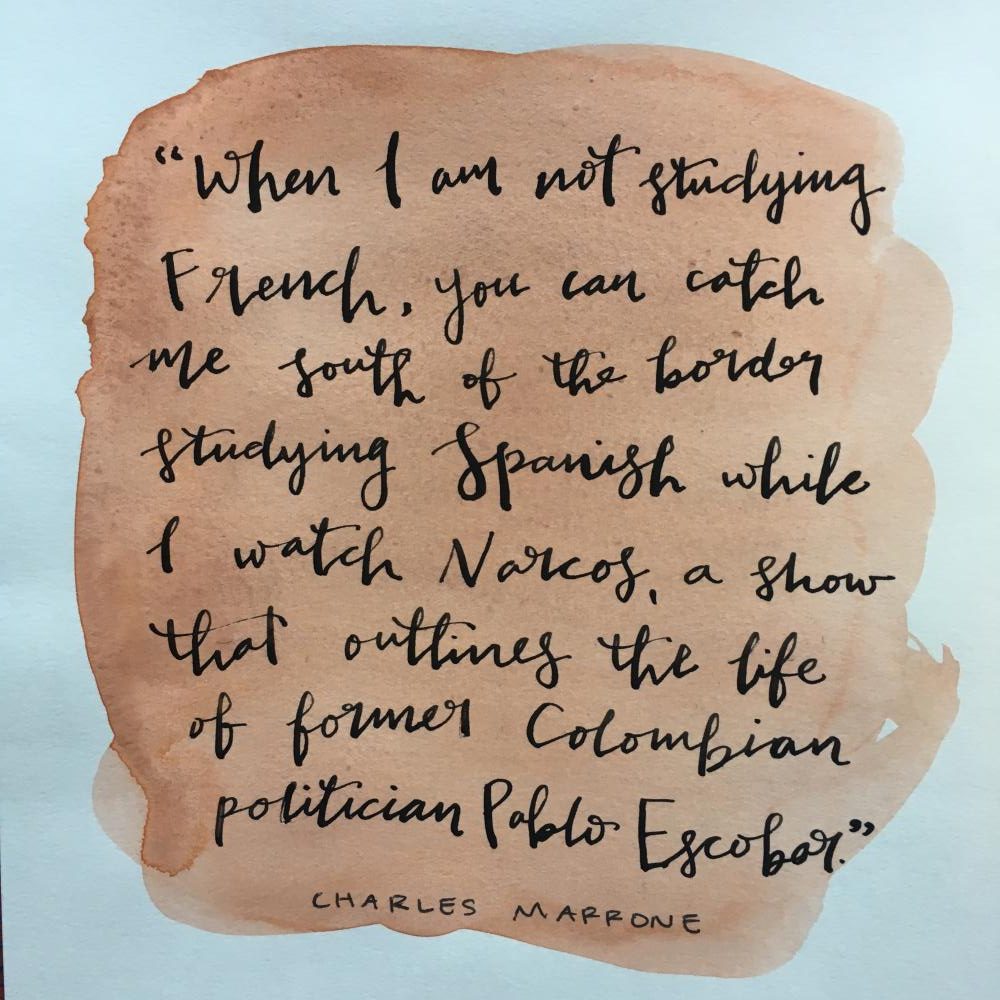 “When I am not studying
French, you can catch
me south of the border
studying Spanish while
I watch Narcos, a show
that outlines the life
of former Colombian
politician Pablo Escobar.”
CHARLES MARRONE